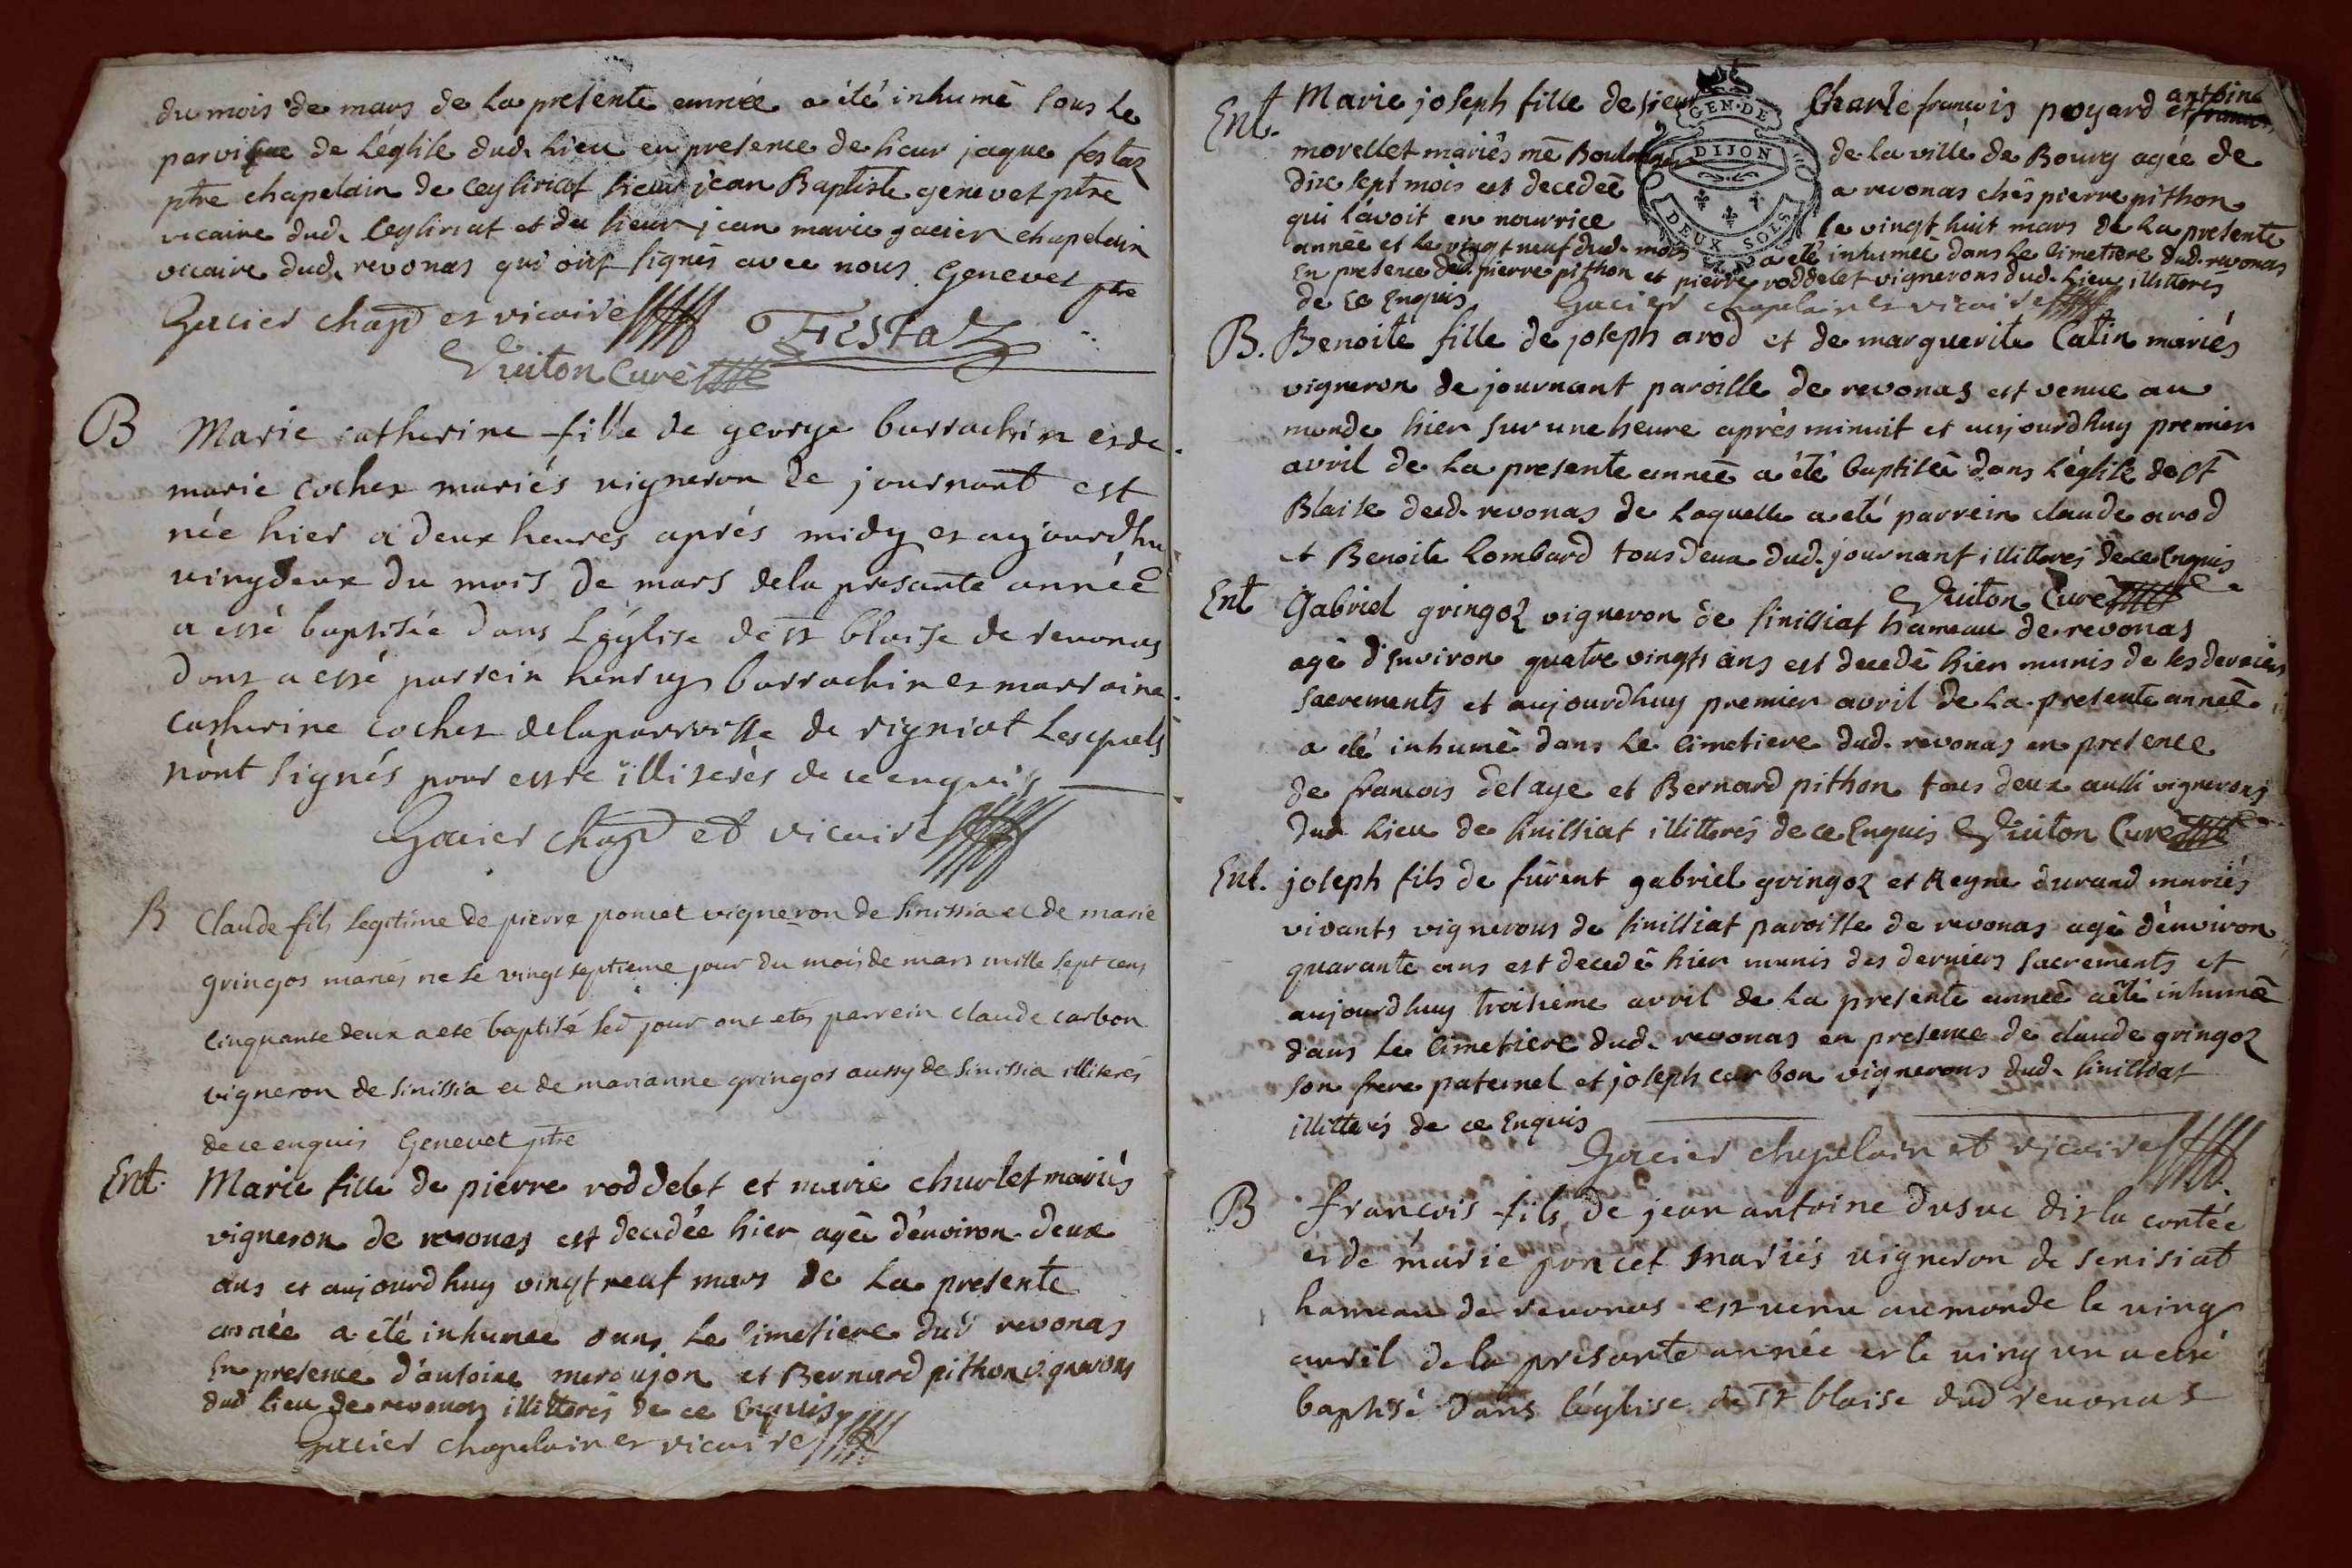 du mois de mars de la presente année a été inhumé sous le
parvique de l'églile dud. lieu en presence de sieur jaque festaz
ptre chapelain de Ceylsiriat sieur jean Baptiste genevet ptre
vicaire dud. Ceylsiriat et du sieur jean marie gacier chapelain
vicaire dud. revonas qui ont signés avec nous. Genevet ptre
Gacier chapᵈ et vicaire Festaz
Vuiton Curé
B Marie catherine fille de george barrachin et de
marie cochet mariés vigneron de journant est
née hier a deux heures aprés midy et aujourdhu
vingdeux du mois de mars dela presante année
a esté baptisée dans L'église de st blaise de revonas
dont a esté parrein henry barrachin et marraine
catherine cochet delaparroisse de rigniat Lesquels
n'ont signés pour estre illiterés de ce enquis
Gacier chapᵈ et vicaire
B Claude fils legitime de pierre poncet vigneron de Sinissia et de marie
gringos mariés ne le vingt septieme jour du mois de mars mille sept cens
cinquante deux a esté baptisé led jour ont etés parrein claude carbon
vigneron de sinissia et de marianne gringos aussy de Sinissia illiterés
de ce enquis Genevet ptre
Ent. Marie fille de pierre roddelet et marie churlet mariés
vigneron de revonas est decedée hier agée d'environ deux
ans et aujourdhuy vingt neuf mars de la presente
année a été inhumée dans le cimetiere dud revonas
En presence d'antoine maroujon et Bernard pithon vignerons
dud lieu de revonas illitterés de ce Enquis
Gacier chapelain et vicaire
Ent. Marie joseph fille de sieur Charle francois poyard et antoine
morellet mariés me Boulanger de la ville de Bourg agée de
dix sept mois est decedeé a revonas chés pierre pithon
qui l'avoit en nourrice le vingt huit mars de la presente
année et le vingt neuf dud. mois a été inhumeé dans le cimetiere dud. revonas
En presence dud. pierre pithon et pierre roddelet vignerons dud. lieu illitterés
de ce Enquis Gacier chapelain et vicaire
GEN. DE
DIJON
DEUX SOLS
B. Benoite fille de joseph arod et de marguerite Catin mariés
vigneron de journant paroisse de revonas est venue au
monde hier sur une heure aprés minuit et aujourdhuy premier
avril de la presente année a été baptisée dans l'église de St
Blaise dud. revonas de laquelle a eté parrein claude arod
et Benoite Lombard tous deux dud. journant illitterés de ce Enquis
Vuiton Curé
Ent Gabriel gringoz vigneron de sinissiat hameau de revonas
agé d'Environ quatre vingts ans est decedé hier munis de ses derniers
sacrements et aujourdhuy premier avril de la presente année
a été inhumé dans le cimetiere dud. revonas en presence
de francois delaye et Bernard pithon tous deux aussi vignerons
dud lieu de sinissiat illitterés de ce Enquis Vuiton Curé
Ent. joseph fils de fürent gabriel gringoz et Reyne durand mariés
vivants vignerons de sinissiat paroisse de revonas agé d'environ
quarante ans est decedé hier munis des derniers sacrements et
aujourdhuy troisiéme avril de la presente année a été inhumé
dans le cimetiere dud. revonas en presence de claude gringoz
son frere paternel et joseph carbon vignerons dud. sinissiat
illitterés de ce Enquis
Gacier chapelain et vicaire
B francois fils de jean antoine dusuc dit la contée
et de marie poncet mariés vigneron de senisiat
hameau de revonas est venu au monde le ving
avril dela presante année et le ving un a esté
baptisé dans l'église de st blaise dud revonas